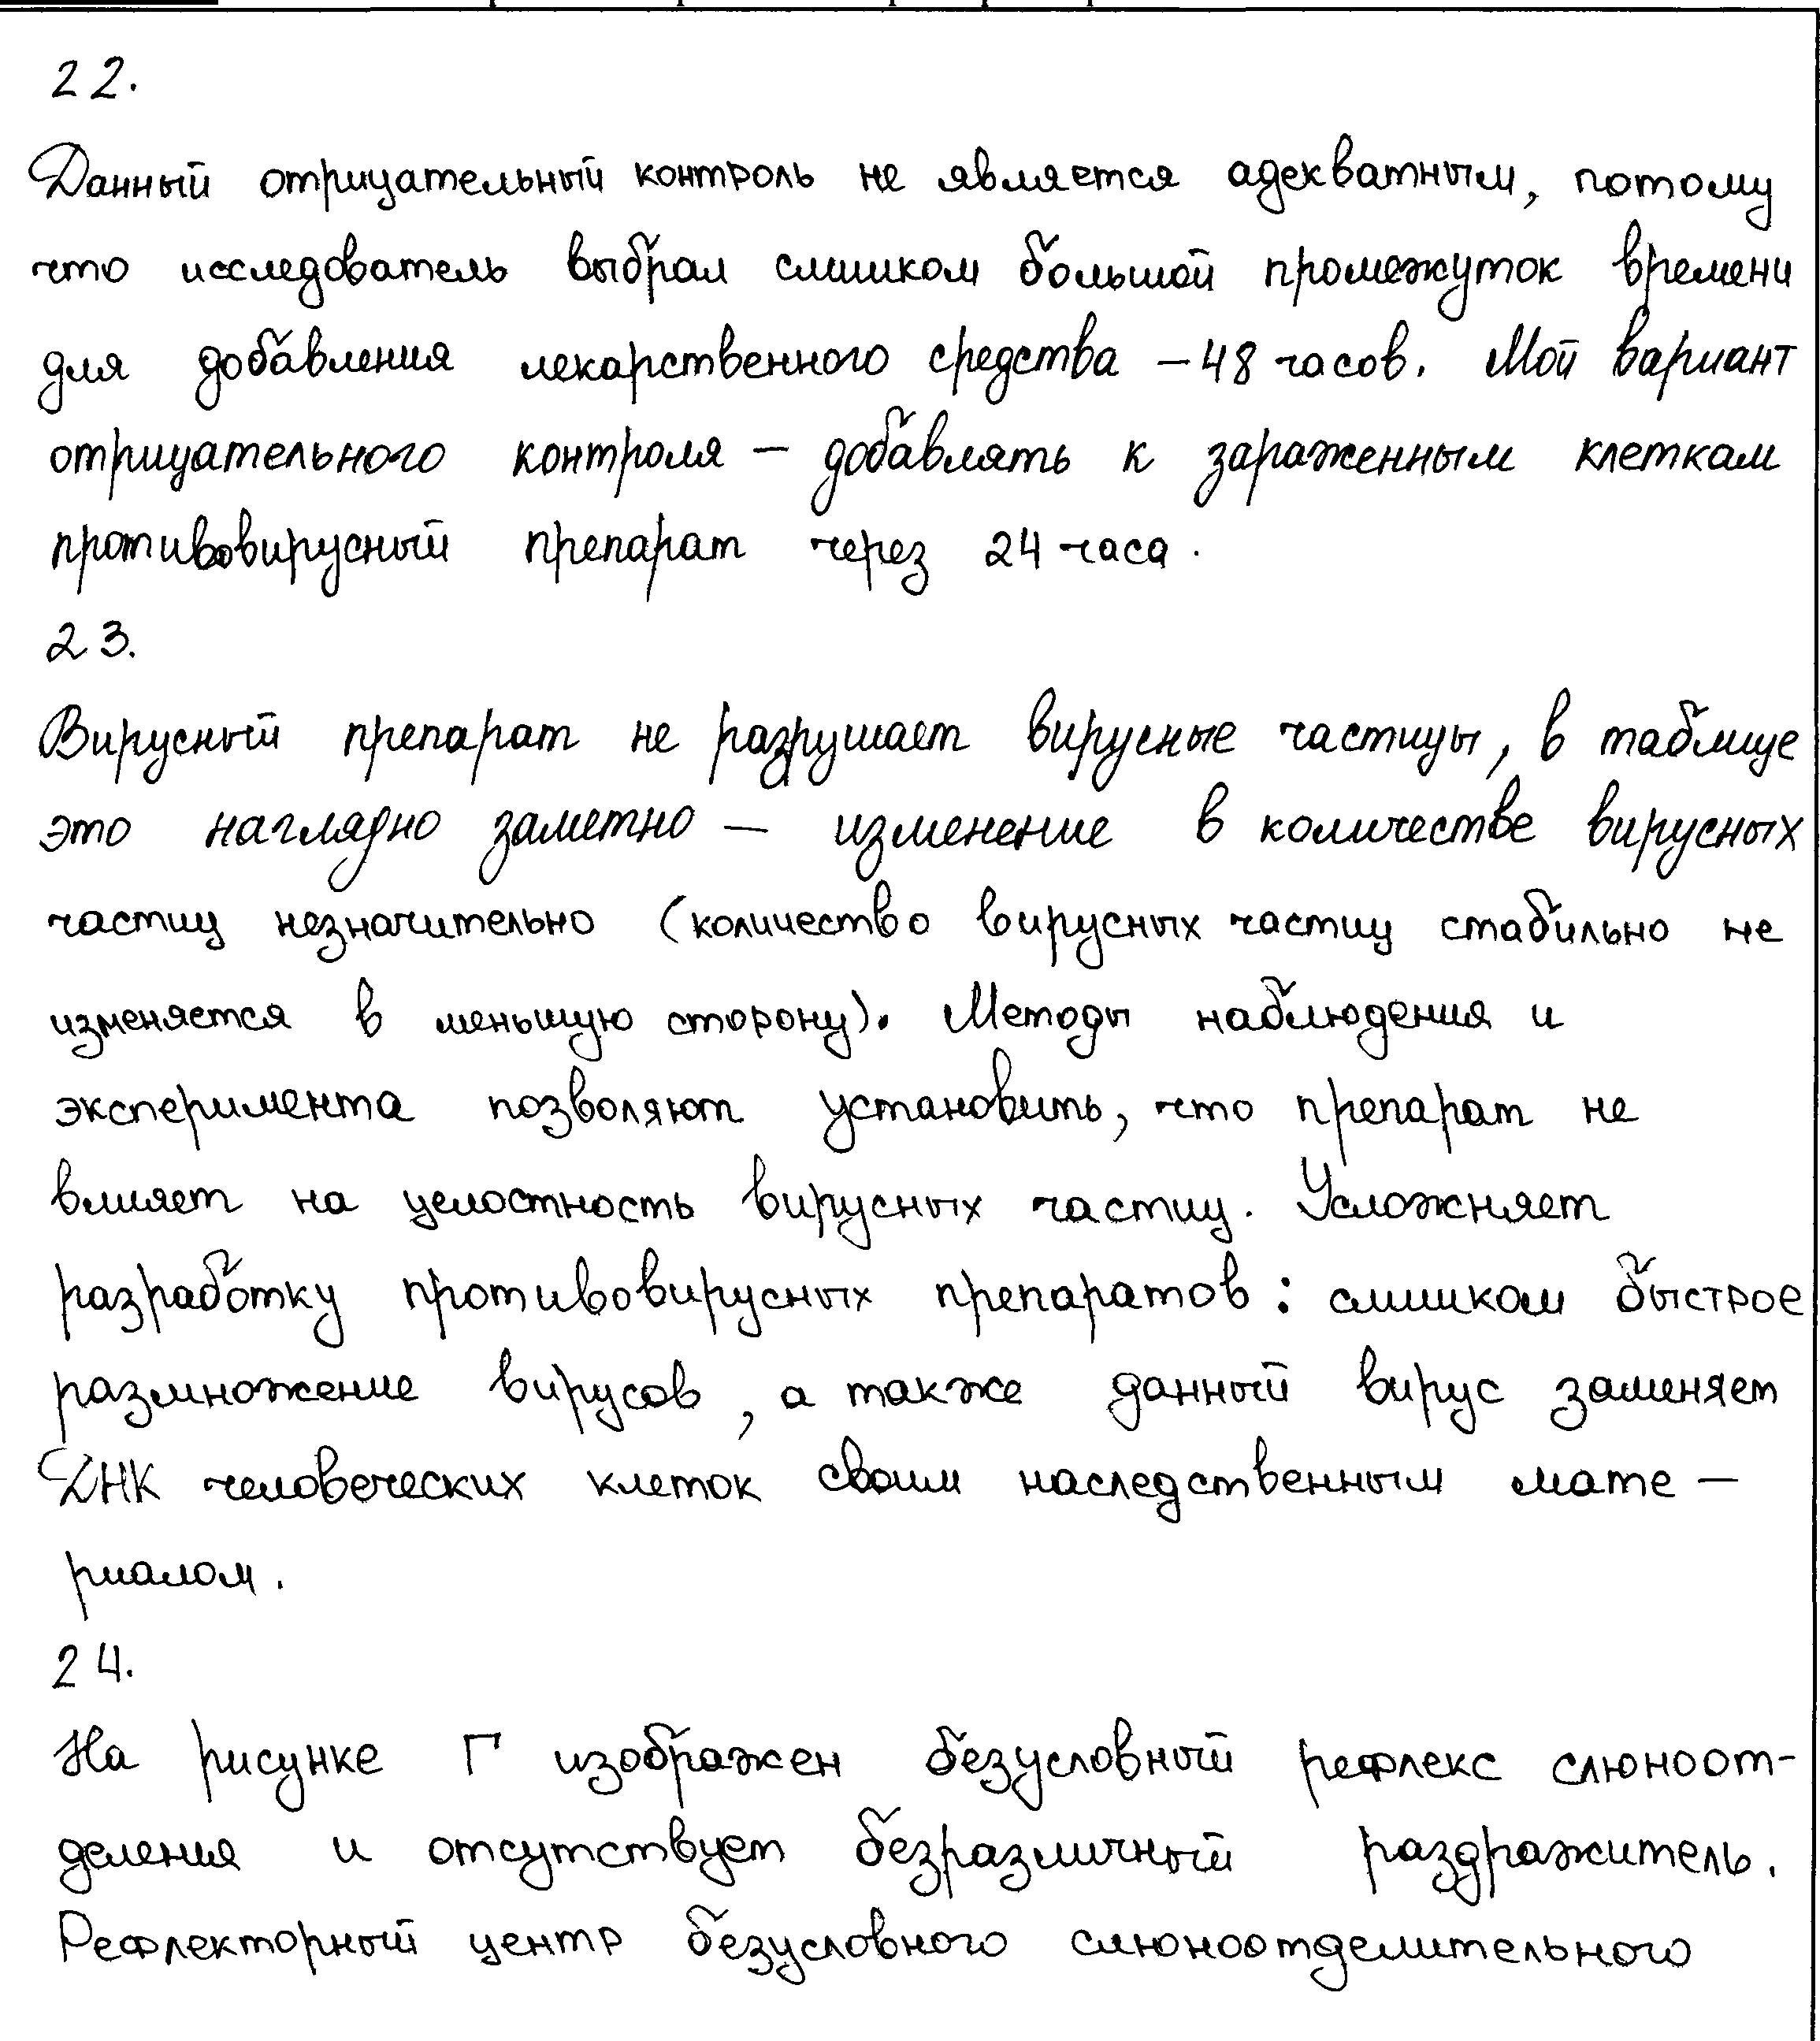 22.
Данный отрицательный контроль не является адекватным, потому
что исследователь выбрал слишком большой промежуток времени
для добавления лекарственного средства – 48 часов. Мой вариант
отрицательного контроля – добавлять к зараженным клеткам
противовирусный препарат через 24 часа.
23.
Вирусный препарат не разрушает вирусные частицы, в таблице
это наглядно заметно – изменение в количестве вирусных
частиц незначительно (количество вирусных частиц стабильно не
изменяется в меньшую сторону). Методы наблюдения и
эксперимента позволяют установить, что препарат не
влияет на целостность вирусных частиц. Усложняет
разработку противовирусных препаратов: слишком быстрое
размножение вирусов, а также данный вирус заменяет
ДНК человеческих клеток своим наследственным мате-
риалом.
24.
На рисунке Г изображен безусловный рефлекс слюноот-
деления и отсутствует безразличный раздражитель.
Рефлекторный центр безусловного слюноотделительного